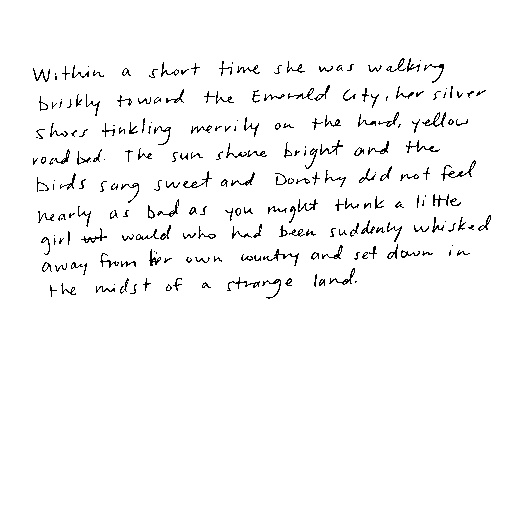 Within a short time she was walking
briskly toward the Emerald City, her silver
shoes tinkling merrily on the hard, yellow
road bed. The sun shone bright and the
birds sang sweet and Dorothy did not feel
nearly as bad as you might think a little
girl would who had been suddenly whisked
away from her own country and set down in
the midst of a strange land.